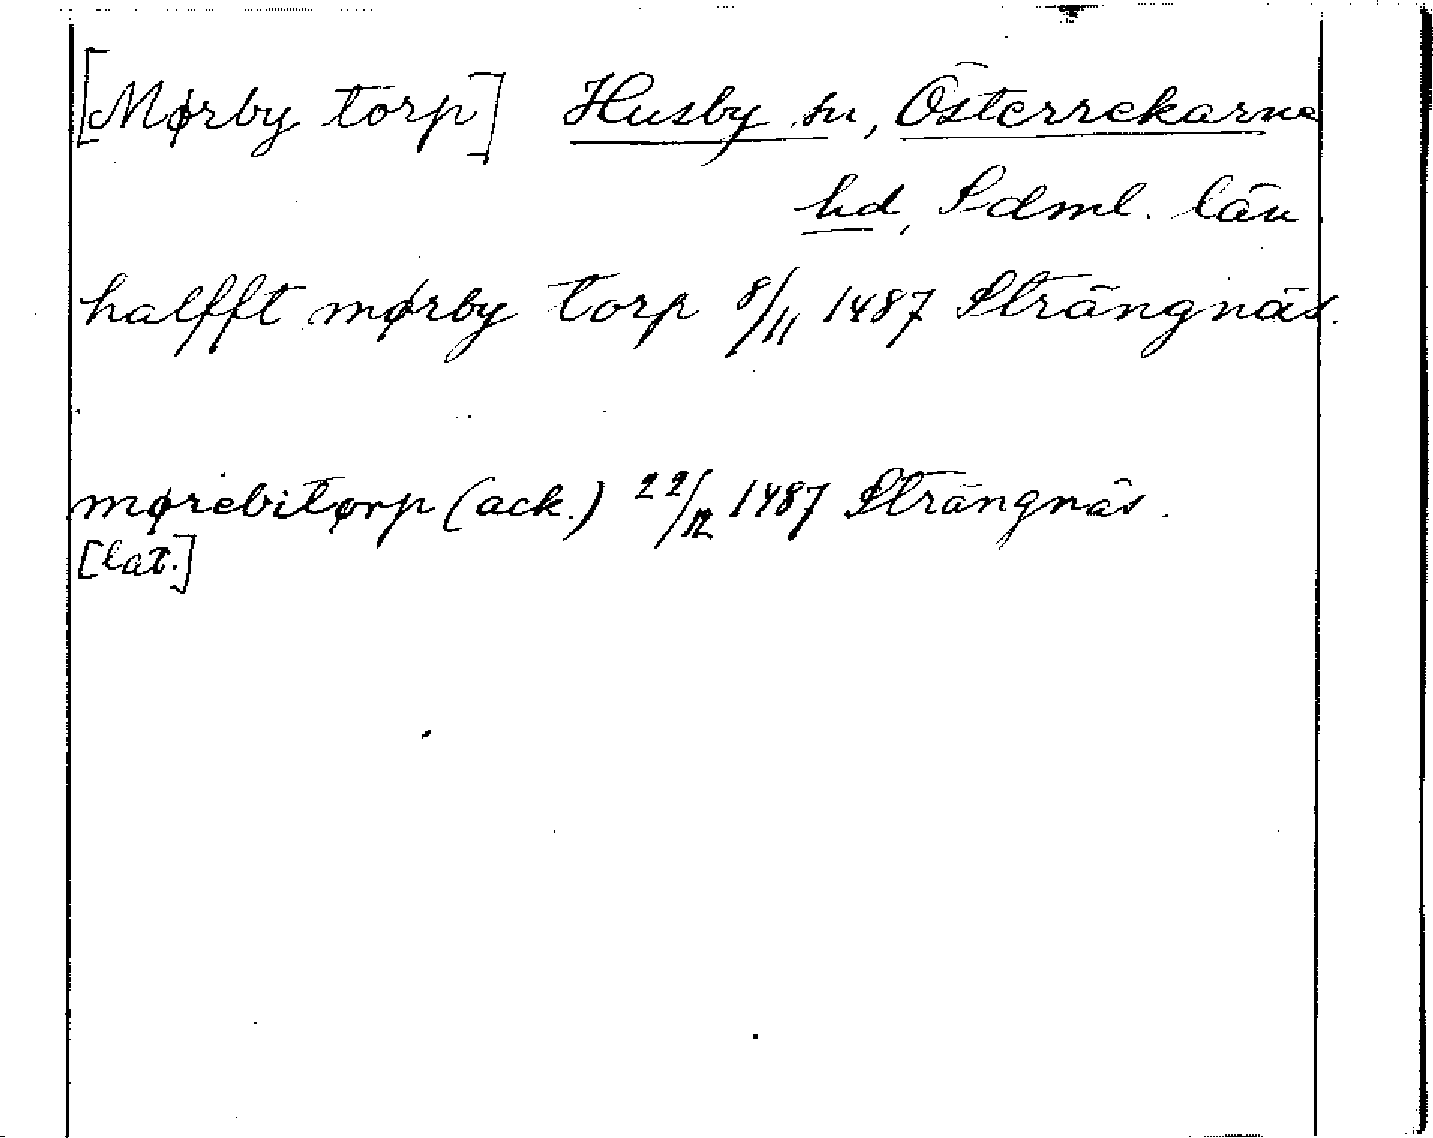 [Mørby torp] Husby sn, Österrekarne
hd, Sdml. län
halfft mørby torp 8/11 1487 Strängnäs.
mørebitørp (ack.) 22/12 1487 Strängnäs.
[lat.]